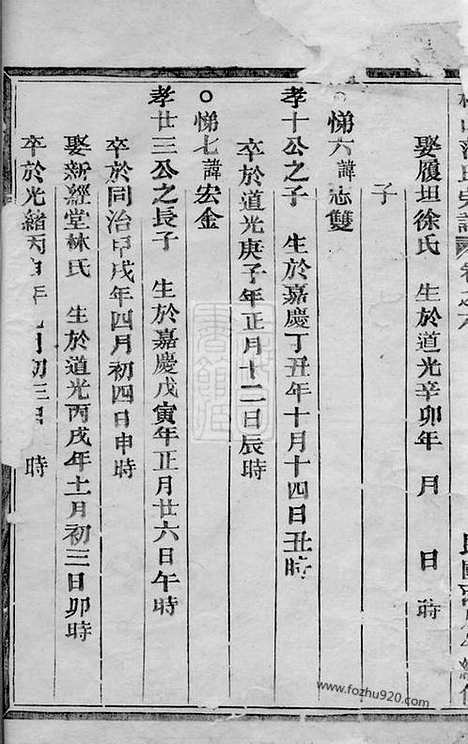 娶履坦徐氏　生於道光辛卯年　月　日　時
子
○悌六諱志雙
孝十公之子　生於嘉慶丁丑年十月十四日丑時
卒於道光庚子年正月十二日辰時
○悌七諱宏金
孝廿三公之長子　生於嘉慶戊寅年正月廿六日午時
卒於同治甲戌年四月初四日申時
娶新經堂林氏　生於道光丙戌年十一月初三日卯時
卒於光緒丙申年　月初三日　時
www.fozhu920.com